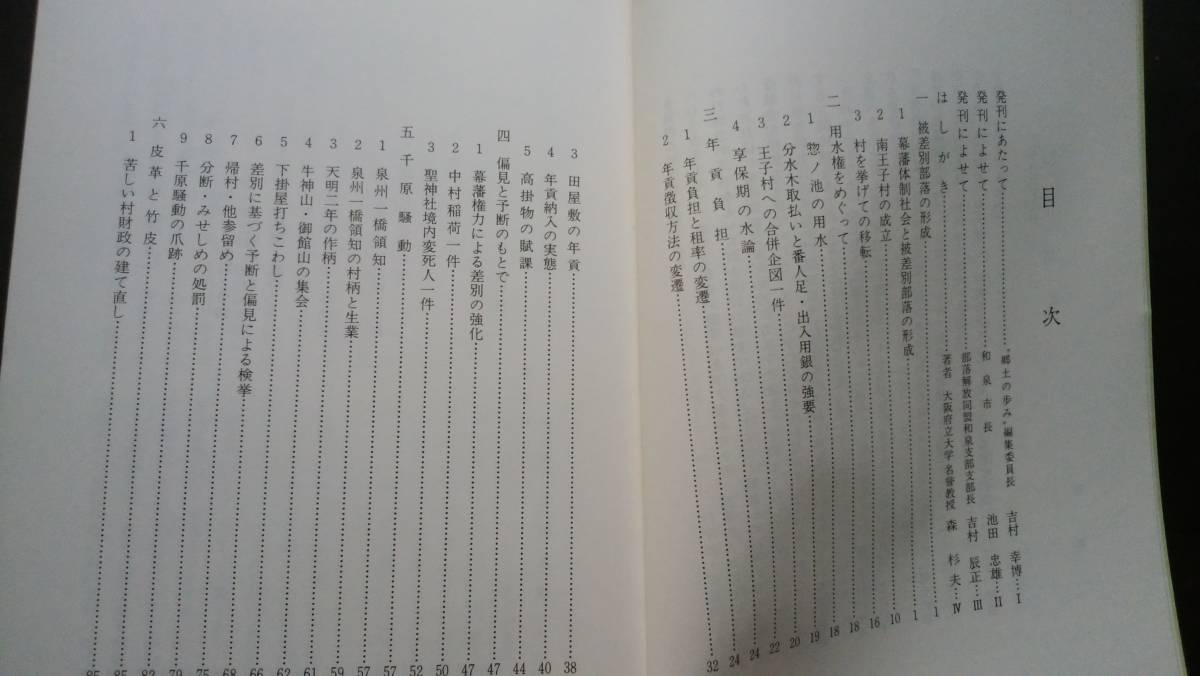 目次
発刊にあたって………“郷土の歩み”編集委員長 吉村 幸博…Ⅰ
発刊によせて………和泉市長 池田 忠雄…Ⅱ
発刊によせて………部落解放同盟和泉支部支部長 吉村 辰正…Ⅲ
はしがき………著者 大阪府立大学名誉教授 森 杉夫…Ⅳ
一 被差別部落の形成………1
1 幕藩体制社会と被差別部落の形成………1
2 南王子村の成立………10
3 村を挙げての移転………16
二 用水権をめぐって………18
1 惣ノ池の用水………18
2 分水木取払いと番人足・出入用銀の強要………19
3 王子村への合併企図一件………20
4 享保期の水論………22
三 年貢負担………24
1 年貢負担と租率の変遷………24
2 年貢徴収方法の変遷………32
3 田屋敷の年貢………38
4 年貢納入の実態………40
5 高掛物の賦課………44
四 偏見と予断のもとで………47
1 幕藩権力による差別の強化………47
2 中村稲荷一件………50
3 聖神社境内変死人一件………52
五 千原騒動………57
1 泉州一橋領知………57
2 泉州一橋領知の村柄と生業………59
3 天明二年の作柄………61
4 牛神山・御館山の集会………62
5 下掛屋打ちこわし………66
6 差別に基づく予断と偏見による検挙………68
7 帰村・他参留め………75
8 分断・みせしめの処罰………79
9 千原騒動の爪跡………83
六 皮革と竹皮………85
1 苦しい村財政の建て直し………85